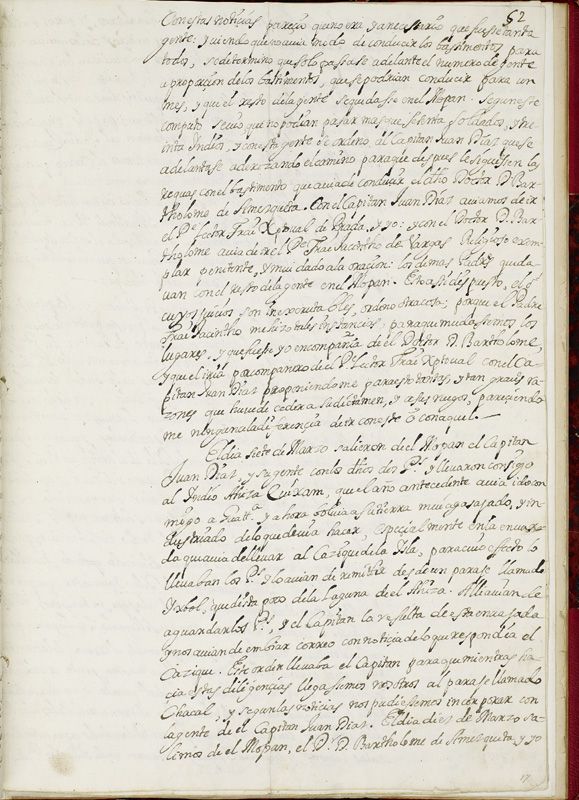 62
Con estas noticias pareçio que no era ya necessario que fuesse tanta
gente; y viendo que no auia modo de conducir los bastimentos para
todos, se determino que solo passase adelante el numero de gente
a proporcion de los bastimentos, que se podrian conducir para un
mes, y que el resto de la gente se quedasse en el Mopan. Segun este
computo se vio que no podian pasar mas que setenta soldados, y tre
inta Indios, y con esta gente se ordenò al Capitan Juan Diaz que se
adelantase aderezando el camino para que despues le siguiesen las
requas con el bastimento que auia de conducir el dho Doctor D. Bar
tholome de Amezqueta. Con el Capitan Juan Diaz auiamos de ir
el Pe. Lector Frai Xptoual de Prada, y yo: y con el Doctor D. Bar
tholome auia de ir el Pe. Frai Jacintho de Vargas Religioso exem
plar penitente, y mui dado a la oracion: los demas Padres queda
uan con el resto de la gente en el Mopan. Esto assi dispuesto, el Sr.
cuyos juicios son inexcrutables, ordeno otra cosa; porque el Padre
Frai Jacintho me hizo tales instancias, para que mudassemos los
lugares, y que fuesse yo en compañia de el Doctor D. Bartholome,
y que el iria por compañero de el P. Lector Frai Xptoual con el Ca
pitan Juan Diaz proponiendome para esto tantas, y tan graues ra
zones que huue de ceder a su dictamen, y a sus ruegos, pareciendo
me ninguna la diferencia de ir con este ô con aquel.
El dia siete de Marzo salieron de el Mopan el Capitan
Juan Diaz, y su gente con los dhos dos Ps. y lleuaron consigo
al Indio Ahiza Cuixam, que el año antecedente auia ido con
migo a Guatta. y ahora boluia a su tierra mui agasajado, y in
dustriado de lo que deuia hacer, especialmente en la embaxa
da que auia de lleuar al Cazique de la Isla, para cuio efecto lo
lleuaban los Ps. y lo auian de remitir desde un paraje llamado
Yxbol, que dista poco de la Laguna de el Ahiza. Alli auian de
aguardar los Ps., y el Capitan la vuelta de esta embaxada
y nos auian de embiar correo con noticia de lo que respondia el
Cazique. Este orden lleuaba el Capitan para que mientras ha
cia estas diligencias llegassemos nosotros al paraje llamado
Chacal, y segun las noticias nos pudiesemos incorporar con
la gente de el Capitan Juan Diaz. El dia diez de Marzo sa
limos de el Mopan, el Dr. D. Bartholome de Amezqueta, y yo
17